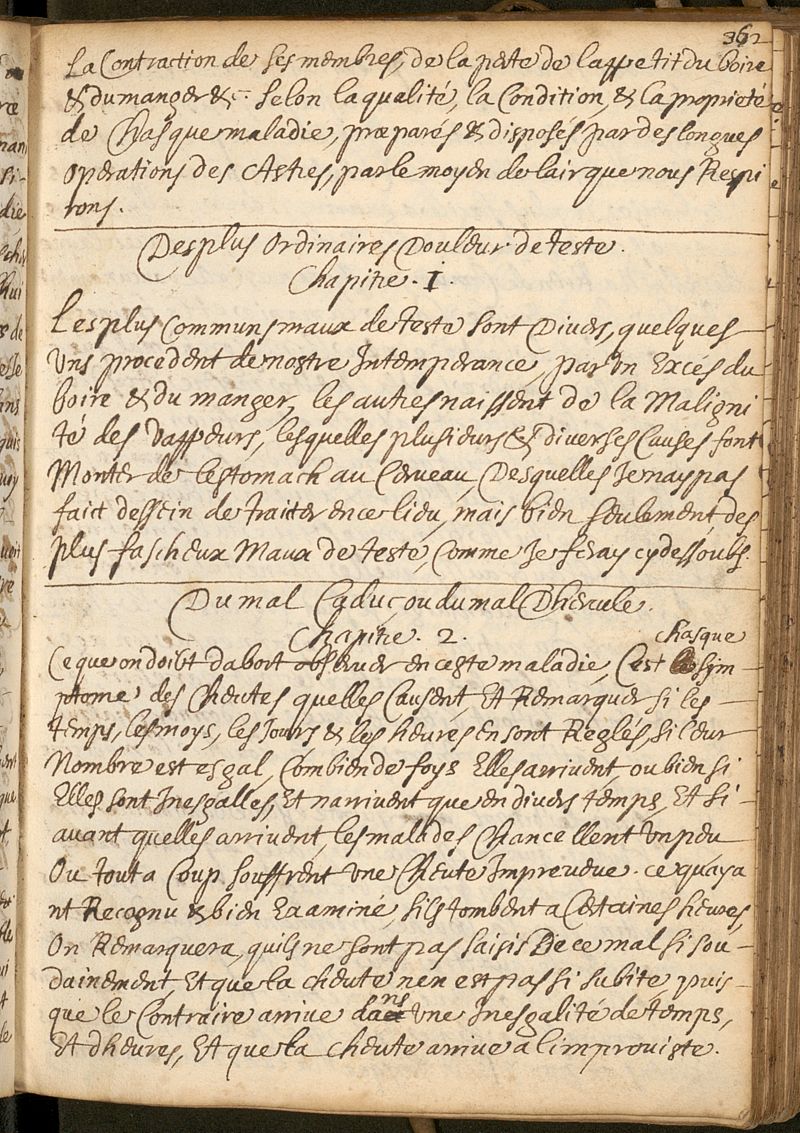 362
La Contraction de ses membres, de la perte de lappetit du boire
& du manger &c. selon la qualité, la Condition, & la proprieté
de Chasque maladie, præparés & disposés par des longues
Operations des Astres, par le moyen de lair que nous Respi
rons.
Des plus Ordinaires Douleur de teste.
Chapitre. I.
Les plus Communs maux de teste sont Divers, quelques
Uns procedent de nostre Intemperance, par Un Excés du
boire & du manger, les autres naissent de la Maligni
té des Vappeurs, lesquelles plusieurs & diverses Causes font
Monter de lestomach au Cerveau, Desquelles Je nay pas
faict dessein de traitter en ce lieu, mais bien seulement des
plus fascheux Maux de teste, Comme Je feray cy dessoubs.
Du mal Caduc, ou du mal Dhercule.
Chapitre. 2.
Chasque
Ce que on doibt dabort observer en ceste maladie, Cest sÿm
ptome des Cheutes quelles Causent, Et Remarquer si les
temps, les moys, les Jours & les heures en sont Reglés, si leur
Nombre est esgal, Combien de foys Elles arrivent, ou bien si
Elles sont Inesgalles, Et narrivent que en divers temps, Et si
avant quelles arrivent, les malades Chancellent Un peu
Ou tout a Coup souffrent Une Cheute Impreveue. ce quaya
nt Recognu & bien Examiné, sils tombent a Certaines heures,
On Remarquera, quils ne sont pas saisis De ce mal si sou
dainement, Et que la cheute nen est pas si subite, puis
que le Contraire arrive dans Une Inesgalité de temps,
Et dheures, Et que la cheute arrive a limproviste.